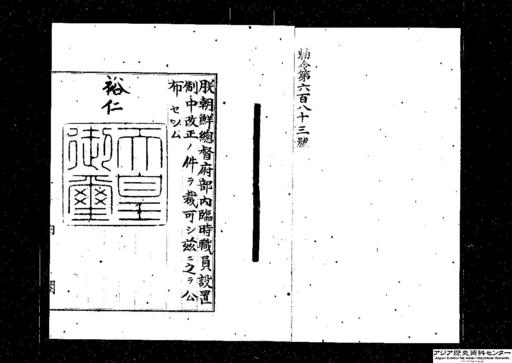 勅令第六百八十三號
朕朝鮮總督府部內臨時職員設置
制中改正ノ件ヲ裁可シ茲ニ之ヲ公
布セシム
裕仁
天皇
御璽
內閣
アジア歴史資料センター
Japan Center for Asian Historical Records